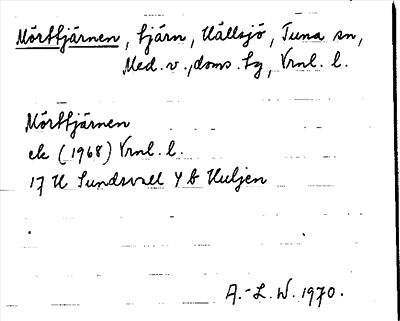 Mörttjärnen, tjärn, Hällsjö, Tuna sn,
Med. v., doms. tg, Vrnl. l.
Mörttjärnen
ek (1968) Vrnl. l.
17 H Sundsvall 4 b Huljen
A.-L. W. 1970.